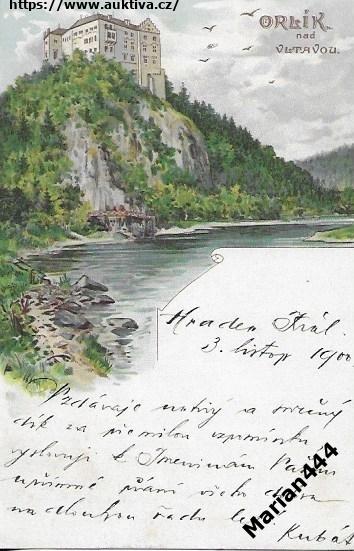 https://www.auktiva.cz/
ORLÍK
nad
VLTAVOU.
Hradec Král.
3. listop 1900
Vzdávaje uctivý a srdečný
dík za přemilou vzpomínku
vyslovuji k Jmeninám Vašim
upřímné přání všeho dobra
na dlouhou řadu let
Kubát
Marian444